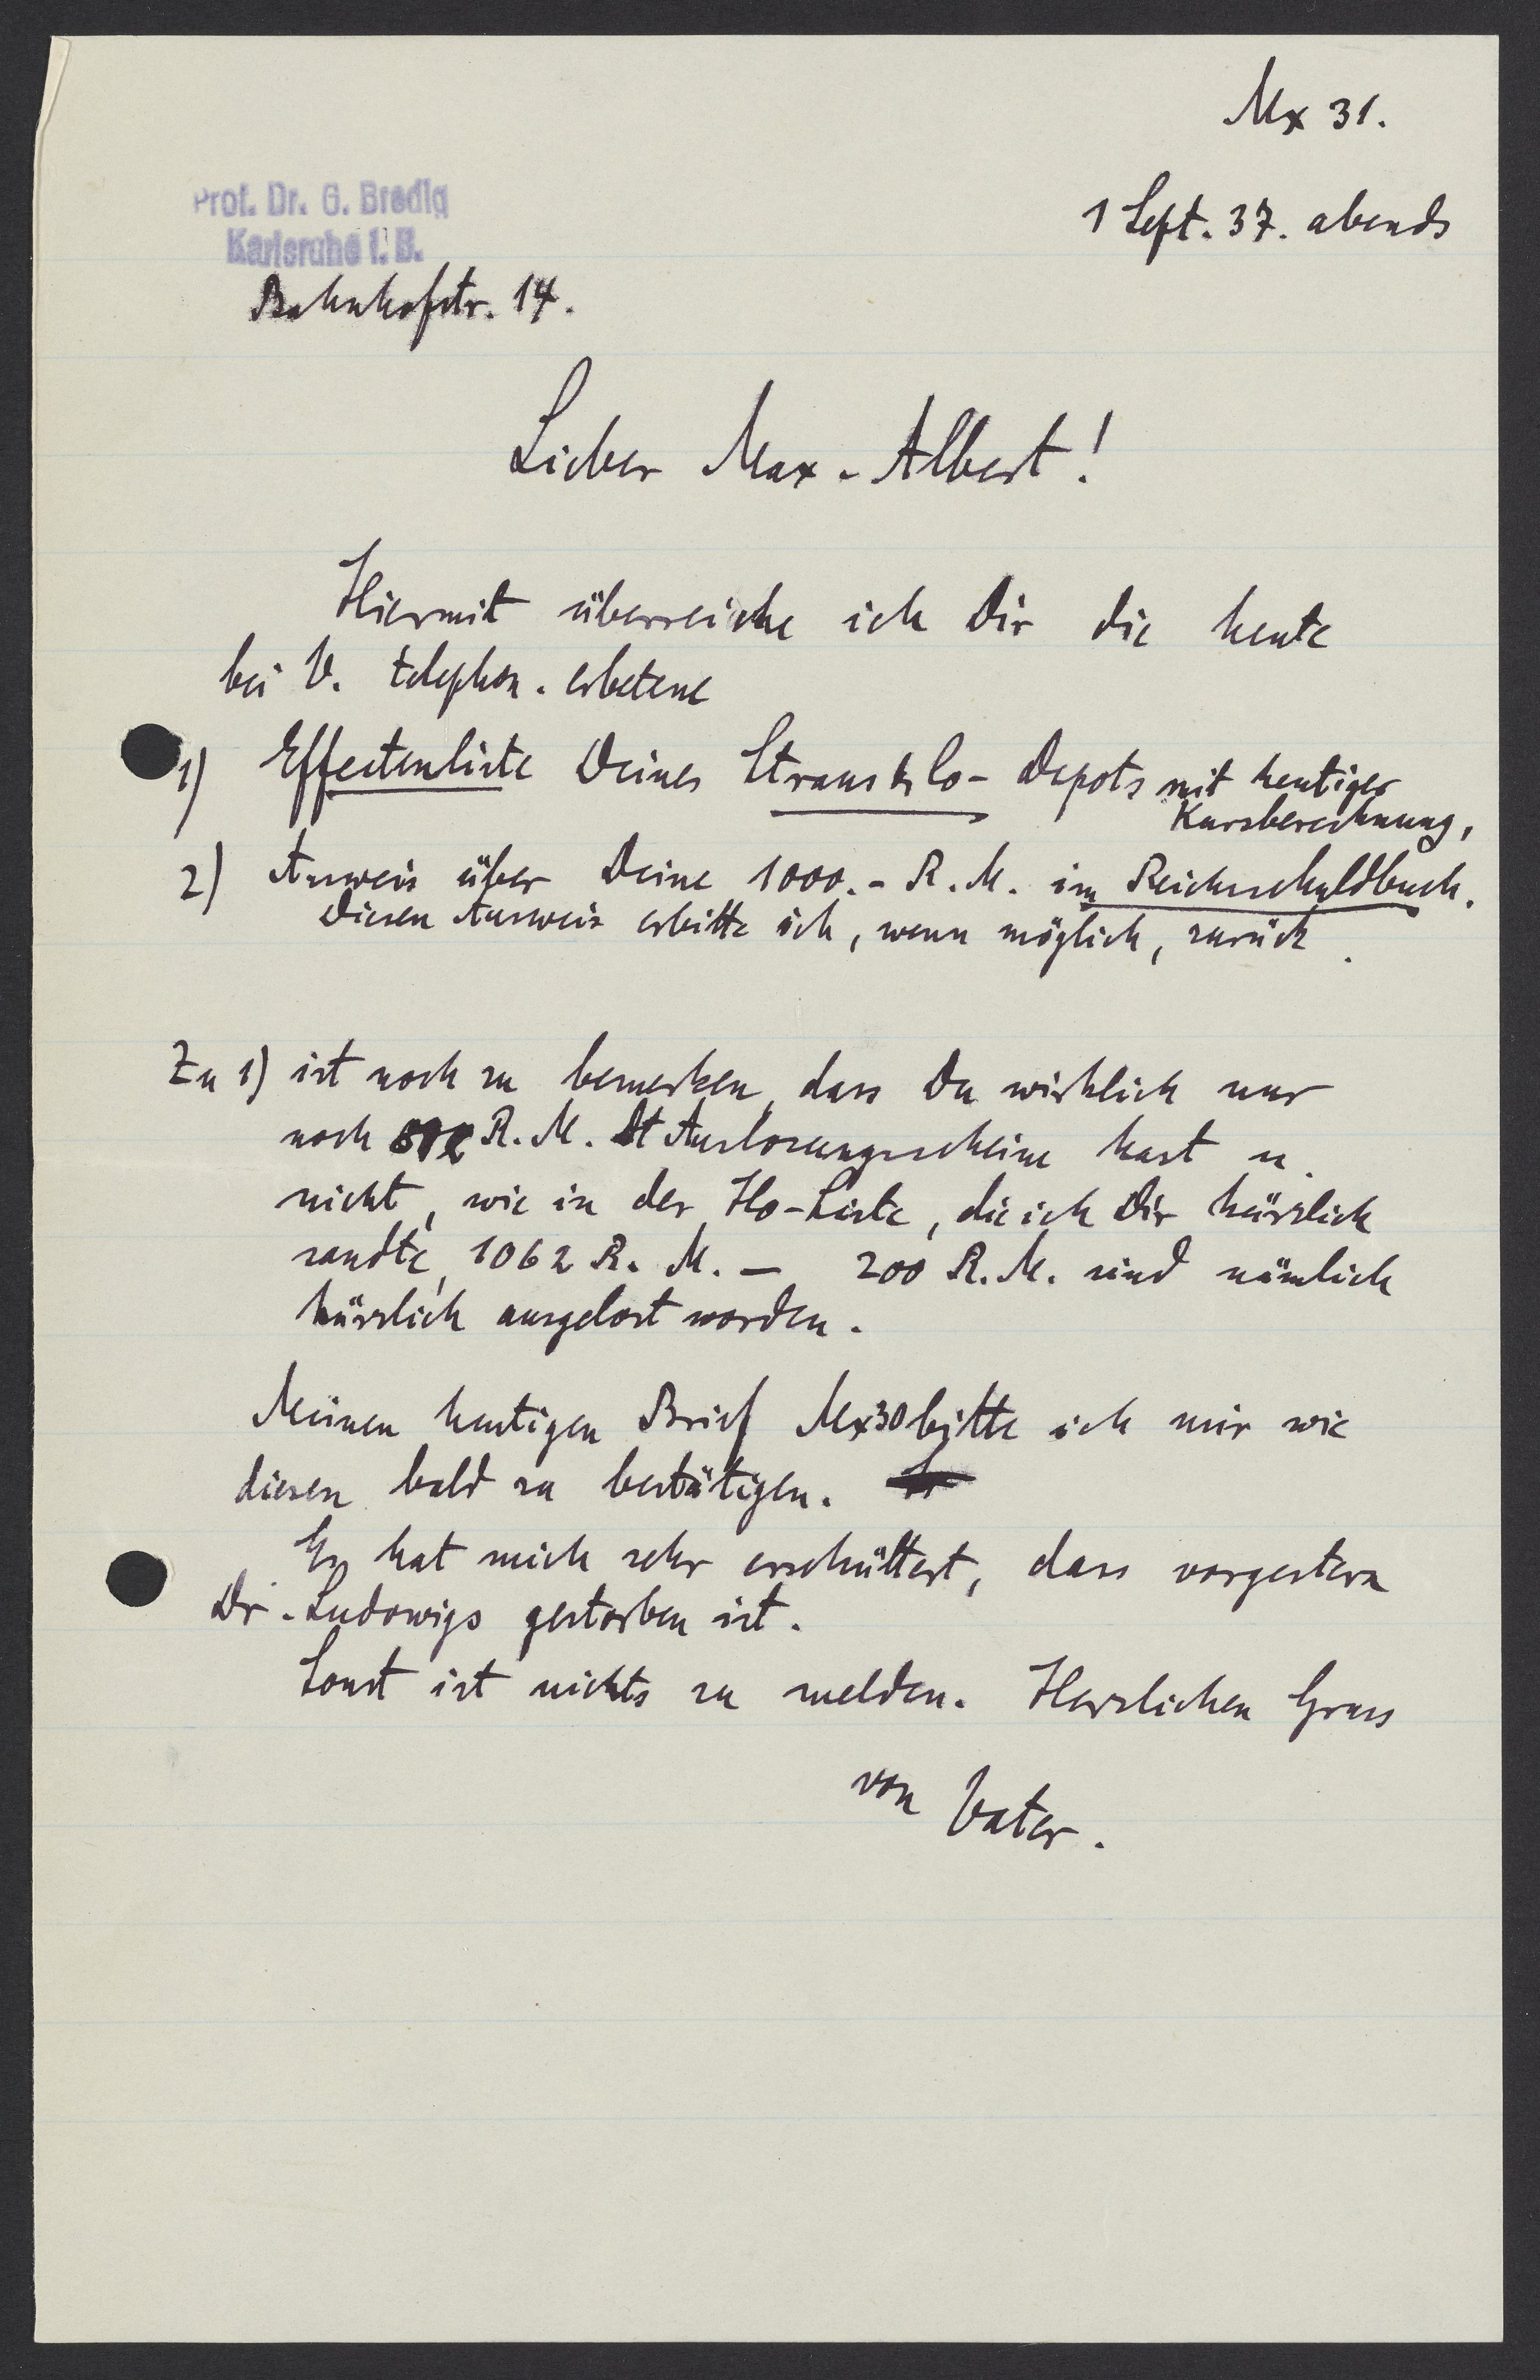 Mx 31.
Prof. Dr. G. Bredig
Karlsruhe i. B.
Bahnhofstr. 14.
1 Sept. 37. abends
Lieber Max-Albert!
Hiermit überreiche ich Dir die heute
bei V. telephon. erbetene
1) Effectenliste Deines Straus & Co- Depots mit heutiger
Kursberechnung,
2) Ausweis über Deine 1000.- R.M. im Reichsschuldbuch.
Diesen Ausweis erbitte ich, wenn möglich, zurück.
Zu 1) ist noch zu bemerken, dass Du wirklich nur
noch R.M. Auslosungsscheine hast u.
nicht, wie in der Ho-Liste, die ich Dir kürzlich
sandte, 1062 R. M. — 200 R.M. sind nämlich
kürzlich ausgelost worden.
Meinen heutigen Brief Mx30 bitte ich mir wie
diesen bald zu bestätigen.
Es hat mich sehr erschüttert, dass vorgestern
Dr. Ludowigs gestorben ist.
Sonst ist nichts zu melden. Herzlichen Gruss
von Vater.